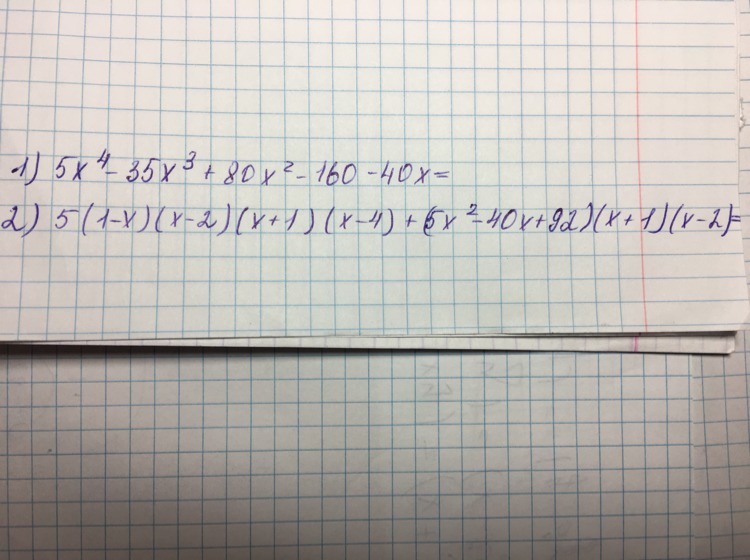 1) 5x⁴ - 35x³ + 80x² - 160 - 40x =
2) 5(1-x)(x-2)(x+1)(x-4) + (5x² - 40x + 92)(x+1)(x-2) =